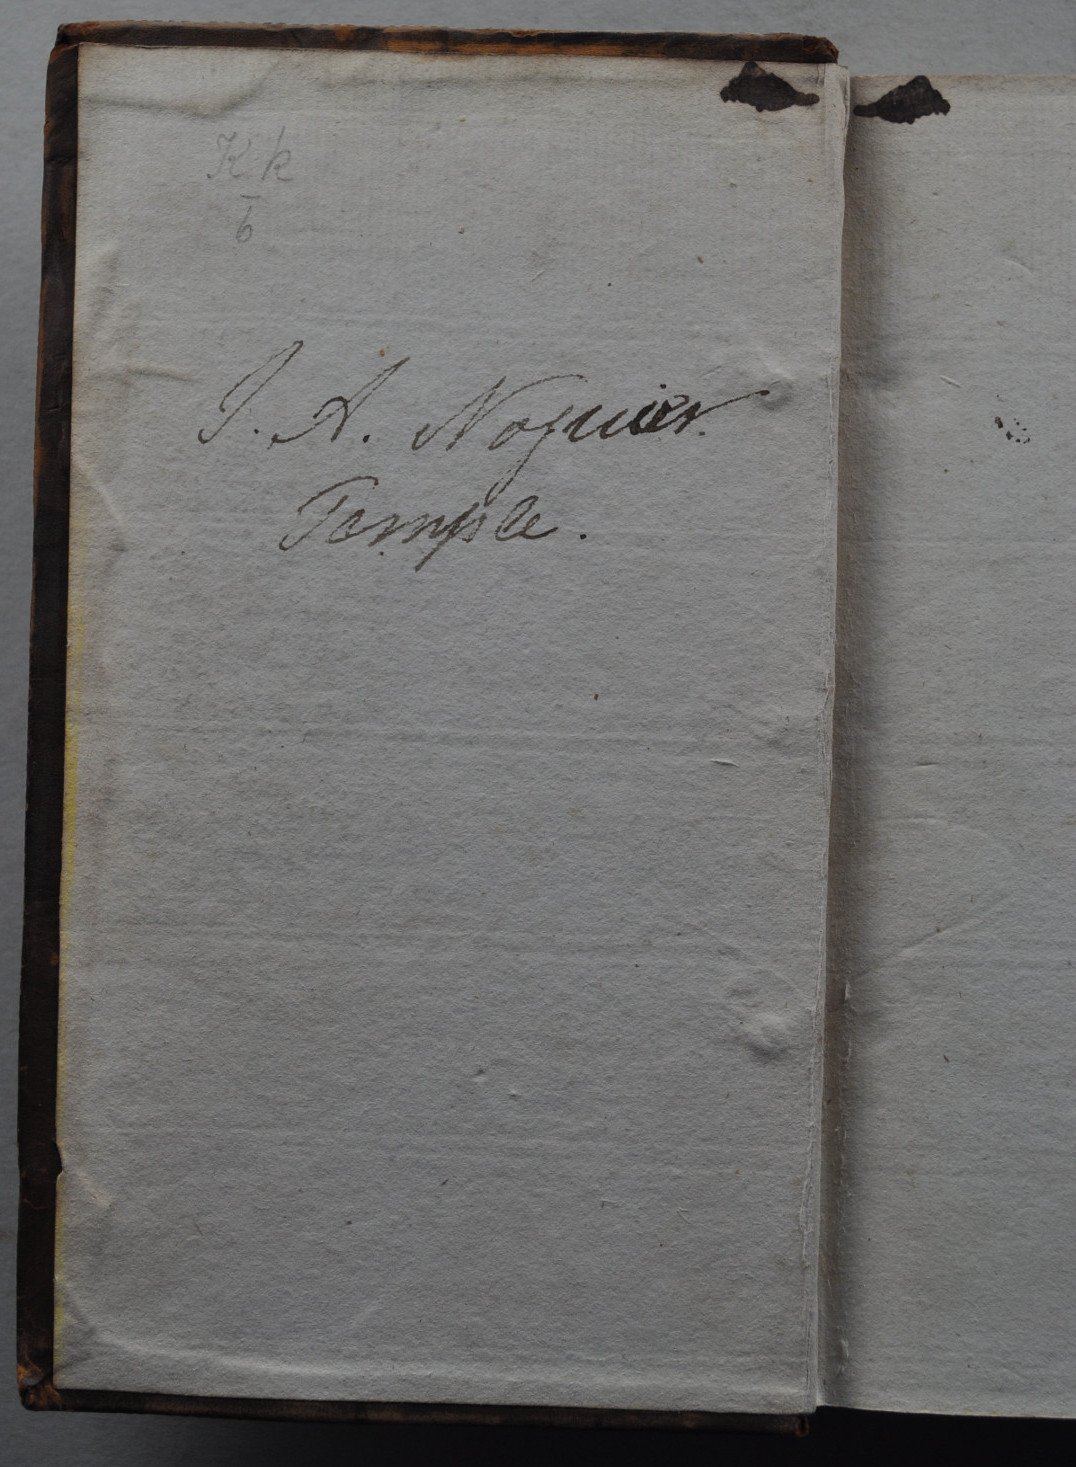 Kk
6
J. A. Noguier.
Temple.